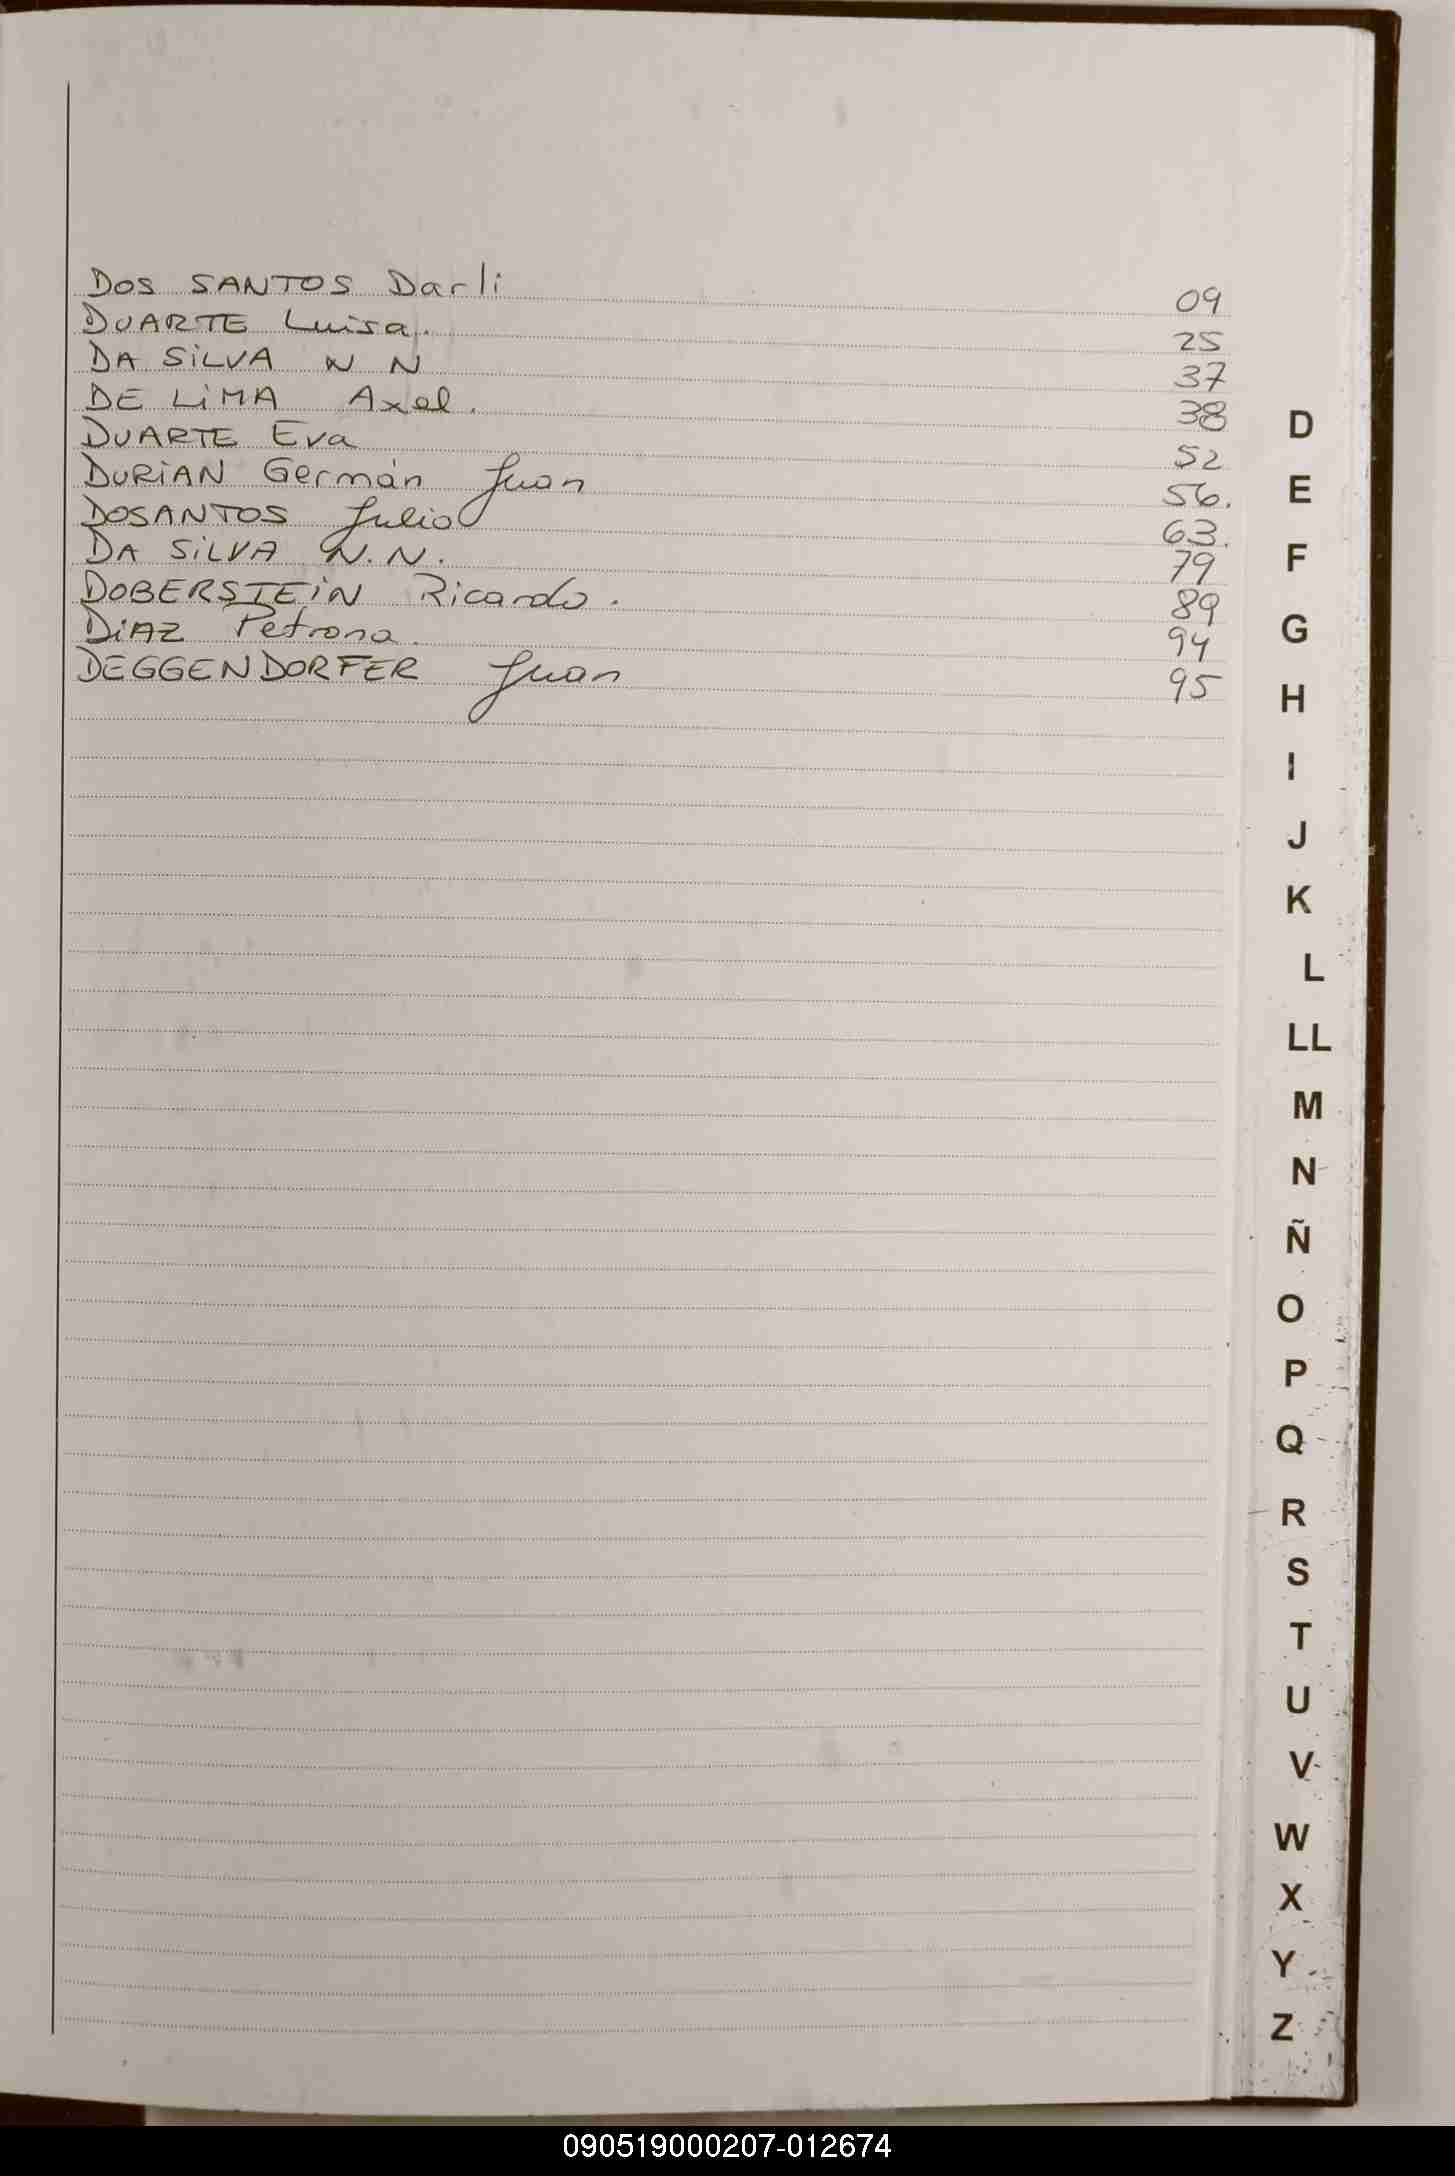 DOS SANTOS Darli 09
DUARTE Luisa. 25
DA SiLVA N N 37
DE LiMA Axel. 38
DUARTE Eva 52
DURiAN Germán Juan 56.
DOSANTOS Julio 63.
DA SiLVA N.N. 79
DOBERSTEiN Ricardo. 89
DiAZ Petrona. 94
DEGGENDORFER Juan 95
D
E
F
G
H
I
J
K
L
LL
M
N
Ñ
O
P
Q
R
S
T
U
V
W
X
Y
Z
090519000207-012674